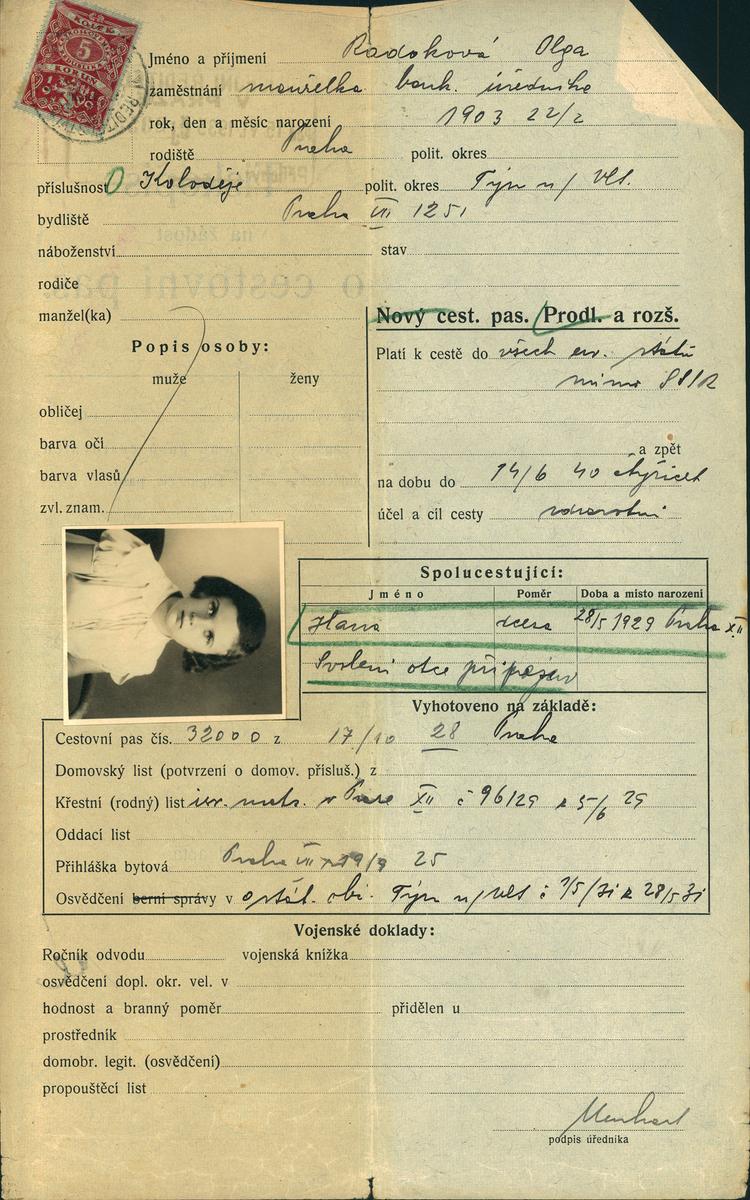 KOLEK
5
KORUN
Jméno a příjmení Radoková Olga
zaměstnání manželka bank. úředníka
rok, den a měsíc narození 1903 22/2
rodiště Praha polit. okres
příslušnost Koloděje polit. okres Týn n/ Vlt.
bydliště Praha VII 1251
náboženství stav
rodiče
manžel(ka)
Nový cest. pas. Prodl. a rozš.
Popis osoby:
muže ženy
obličej
barva očí
barva vlasů
zvl. znam.
Platí k cestě do všech ev. států
mimo SSSR
a zpět
na dobu do 14/6 40 čtyřicet
účel a cíl cesty zdravotní
Spolucestující:
Jméno Poměr Doba a místo narození
Hana dcera 28/5 1929 Praha XII
Svolení otce připojeno
Vyhotoveno na základě:
Cestovní pas čís. 32000 z 17/10 28 Praha
Domovský list (potvrzení o domov. přísluš.) z
Křestní (rodný) list izr. matr. v Praze XII č 96/29 z 5/6 29
Oddací list
Přihláška bytová Praha VII 19/9 25
Osvědčení berní správy v o stát. obč. Týn n/Vlt č 7/5/31 z 28/5 31
Vojenské doklady:
Ročník odvodu vojenská knížka
osvědčení dopl. okr. vel. v
hodnost a branný poměr přidělen u
prostředník
domobr. legit. (osvědčení)
propouštěcí list
podpis úředníka